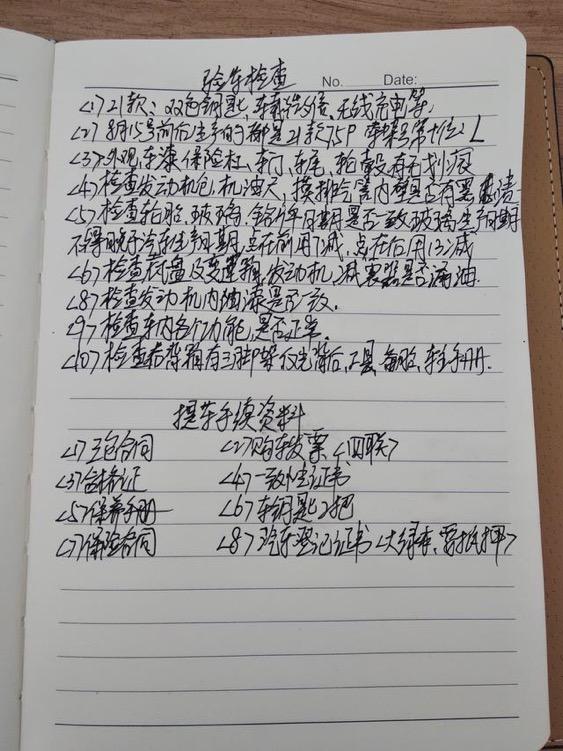 验车检查
No. Date:
<1>21款：双色钥匙，车载微信、无线充电等，
<2>8月15号前后生产的都是21款75P 车架号第十位：L
<3>外观，车漆，保险杠，车门，车尾，轮毂有无划痕
<4>检查发动机仓，机油尺，摸排气管内壁是否有黑 渍
<5>检查轮胎，玻璃， 年日期是否一致玻璃生产日期
不得晚于汽车生产日期，点在前用7减，点在后用13减
<6>检查底盘及变速箱，发动机，减震器是否漏油.
<8>检查发动机内油漆是否一致.
<9>检查车内各个功能是否正常.
<10>检查后背箱有三脚架 背后，工具，备胎，车主手册.
提车手续资料
<1>三包合同 <2>购车发票<四联>
<3>合格证 <4>一致性证书
<5>保养手册 <6>车钥匙2把
<7>保险合同 <8>汽车登记证书<大绿本，需抵押>